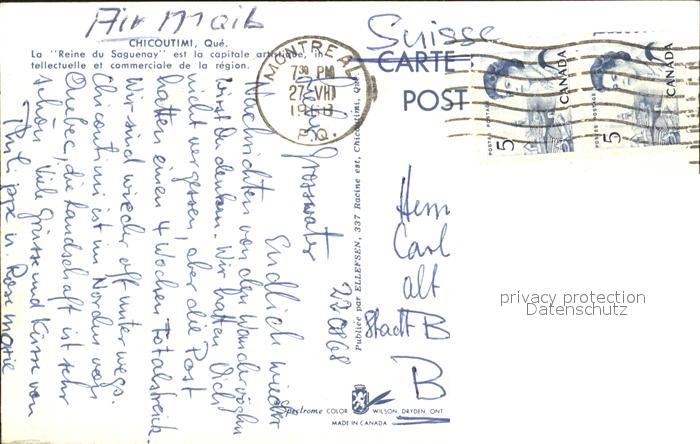 Air Mail
CHICOUTIMI, Qué.
La "Reine du Saguenay" est la capitale artistique, in-
tellectuelle et commerciale de la région.
MONTREAL
7 30 PM
27 VII
P.Q.
Suisse
CARTE
POST
5
POSTES POSTAGE
CANADA
5
POSTES POSTAGE
CANADA
22.07.68
Lieber Grossvater
Endlich wieder
Nachrichten von den Wandervögeln
wirst Du denken. Wir hatten Dich
nicht vergessen, aber die Post
hatten einen 4 Wochen Totalstreik.
Wir sind wieder oft unterwegs.
Chicoutimi ist im Norden von
Quebec, die Landschaft ist sehr
schön. Viele Grüsse und Küsse von
Philippe u. Rosmarie
Publiée par ELLEFSEN, 337 Racine est, Chicoutimi, Qué.
Herrn
Carl
alt
Stadt B
B
privacy protection
Datenschutz
Spectrome COLOR WILSON, DRYDEN, ONT
MADE IN CANADA